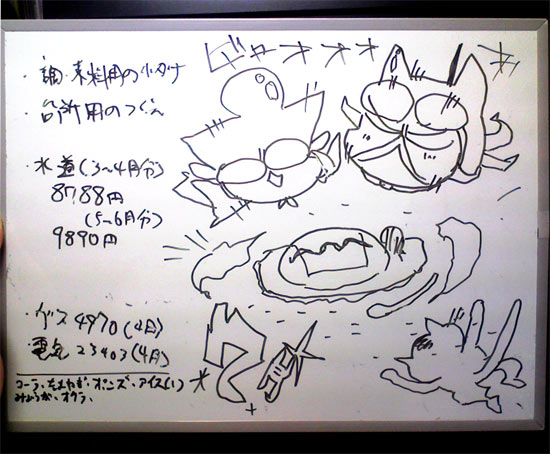 ・調味料用の小ダナ
・台所用のつくえ
・水道(3〜4月分)
8788円
(5〜6月分)
9890円
・ガス 4970(4月)
・電気 23403(4月)
コーラ、たまねぎ、ポンズ、アイス(1)
みょうが、オクラ、
ギャオオオ